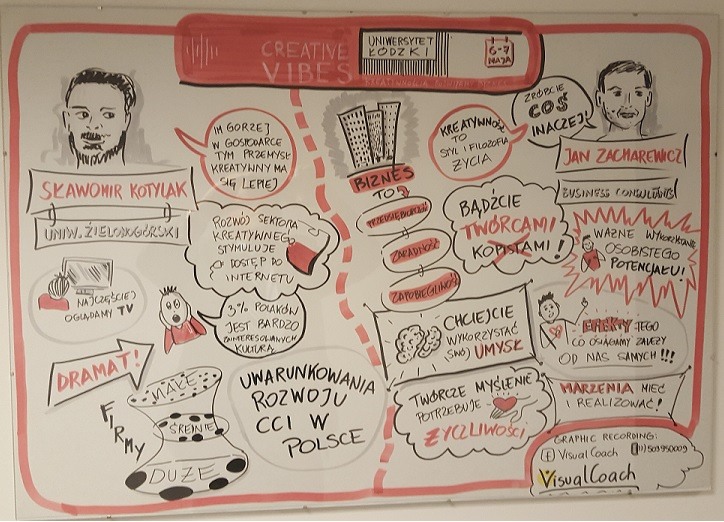 CREATIVE
VIBES
UNIWERSYTET
ŁÓDZKI
6-7
MAJA
SŁAWOMIR KOTYLAK
UNIW. ZIELONOGÓRSKI
IM GORZEJ
W GOSPODARCE
TYM PRZEMYSŁ
KREATYWNY MA
SIĘ LEPIEJ
ROZWÓJ SEKTORA
KREATYWNEGO
STYMULUJE
DOSTĘP DO
INTERNETU
NAJCZĘŚCIEJ
OGLĄDAMY TV
3% POLAKÓW
JEST BARDZO
ZAINTERESOWANYCH
KULTURĄ
DRAMAT!
FIRMY
MAŁE
ŚREDNIE
DUŻE
UWARUNKOWANIA
ROZWOJU
CCI W
POLSCE
BIZNES
TO
PRZEDSIĘBIORCZOŚĆ
ZARADNOŚĆ
ZAPOBIEGLIWOŚĆ
KREATYWNOŚĆ
TO
STYL I FILOZOFIA
ŻYCIA
ZRÓBCIE
COŚ
INACZEJ!
JAN ZACHAREWICZ
BUSINESS CONSULTING
BĄDŹCIE
TWÓRCAMI
KOPISTAMI!
WAŻNE WYKORZYSTANIE
OSOBISTEGO
POTENCJAŁU!
CHCIEJCIE
WYKORZYSTAĆ
SWÓJ UMYSŁ
EFEKTY TEGO
CO OSIĄGAMY ZALEŻY
OD NAS SAMYCH!!!
TWÓRCZE MYŚLENIE
POTRZEBUJE
ŻYCZLIWOŚCI
MARZENIA MIEĆ
I REALIZOWAĆ!
GRAPHIC RECORDING:
f Visual Coach
VisualCoach